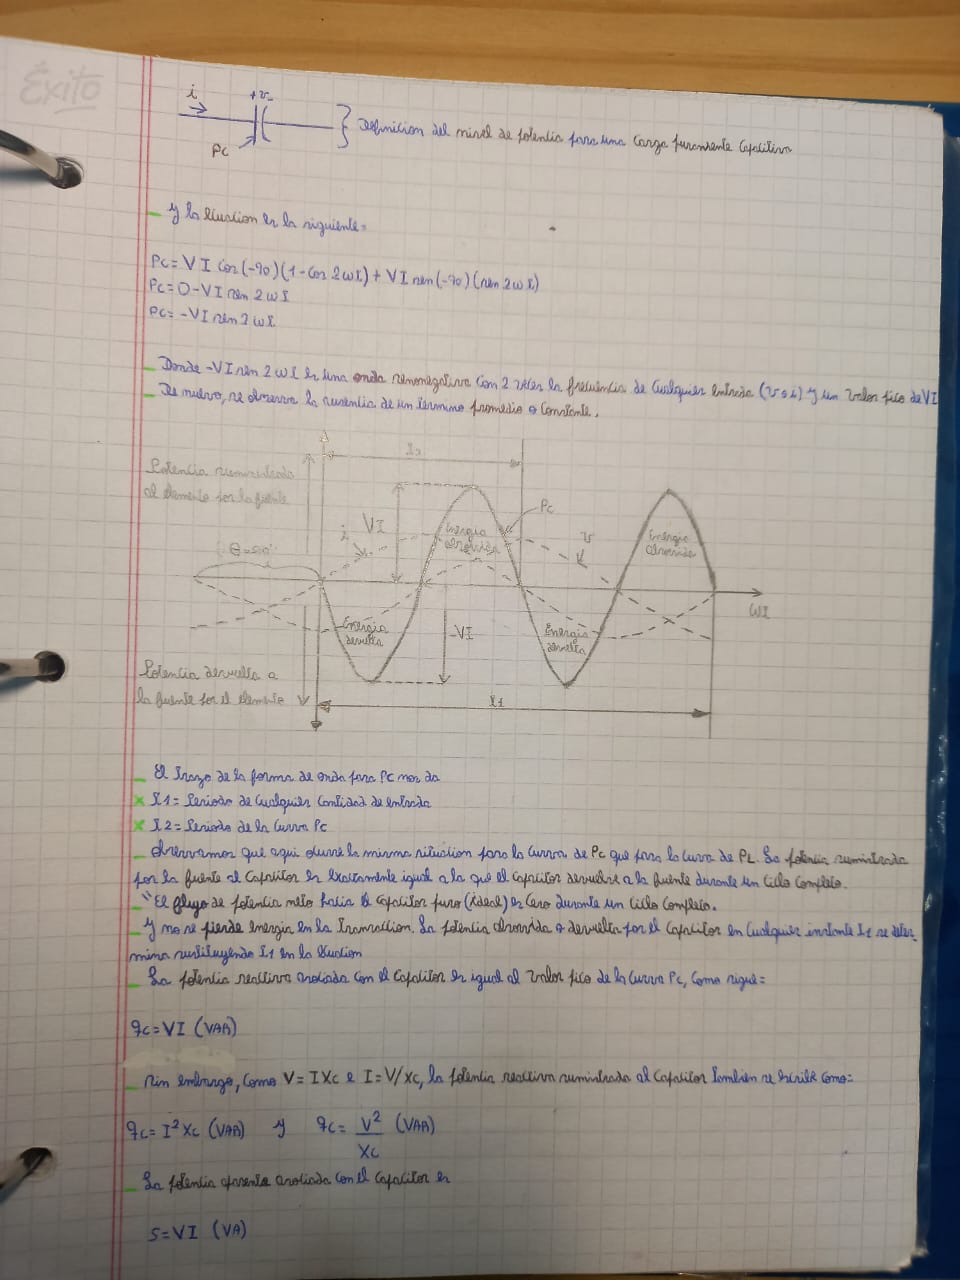 Éxito
i
+ v -
Pc
Definicion del nivel de potencia para una carga puramente capacitiva
- y la ecuacion es la siguiente:
Pc= V I cos(-90)(1-cos 2wt)+ VI sen(-90)(sen 2wt)
Pc= 0-VI sen 2wt
Pc= -VI sen 2wt
- Donde -VI sen 2wt es una onda senonegativa con 2 veces la frecuencia de cualquier entrada (v o i) y un valor pico de VI
- De nuevo, se observa la ausencia de un termino promedio o constante.
t2
Potencia suministrada
al elemento por la fuente
VI
i
Energia
absorvida
Pc
v
Energia
absorvida
θ=-90°
wt
Energia
devuelta
-VI
Energia
devuelta
Potencia devuelta a
la fuente por el elemento
t1
- El trazo de la forma de onda para Pc nos da
x t1= Periodo de cualquier cantidad de entrada
x t2= Periodo de la curva Pc
- observamos que aqui ocurre la misma situacion para la curva de Pc que para la curva de PL. La potencia suministrada
por la fuente al capacitor es exactamente igual a la que el capacitor devuelve a la fuente durante un ciclo completo.
- "El flujo de potencia neto hacia el capacitor puro (ideal) es cero durante un ciclo completo.
- Y no se pierde energia en la transaccion. La potencia absorvida o devuelta por el capacitor en cualquier instante t1 se deter
mina sustituyendo t1 en la ecuacion
- La potencia reactiva asociada con el capacitor es igual al valor pico de la curva Pc, como sigue:
qc= VI (VAR)
- sin embargo, como V= I Xc e I= V/Xc, la potencia reactiva suministrada al capacitor tambien se escribe como:
qc= I² Xc (VAR) y qc= V²/Xc (VAR)
- La potencia aparente asociada con el capacitor es
S=VI (VA)